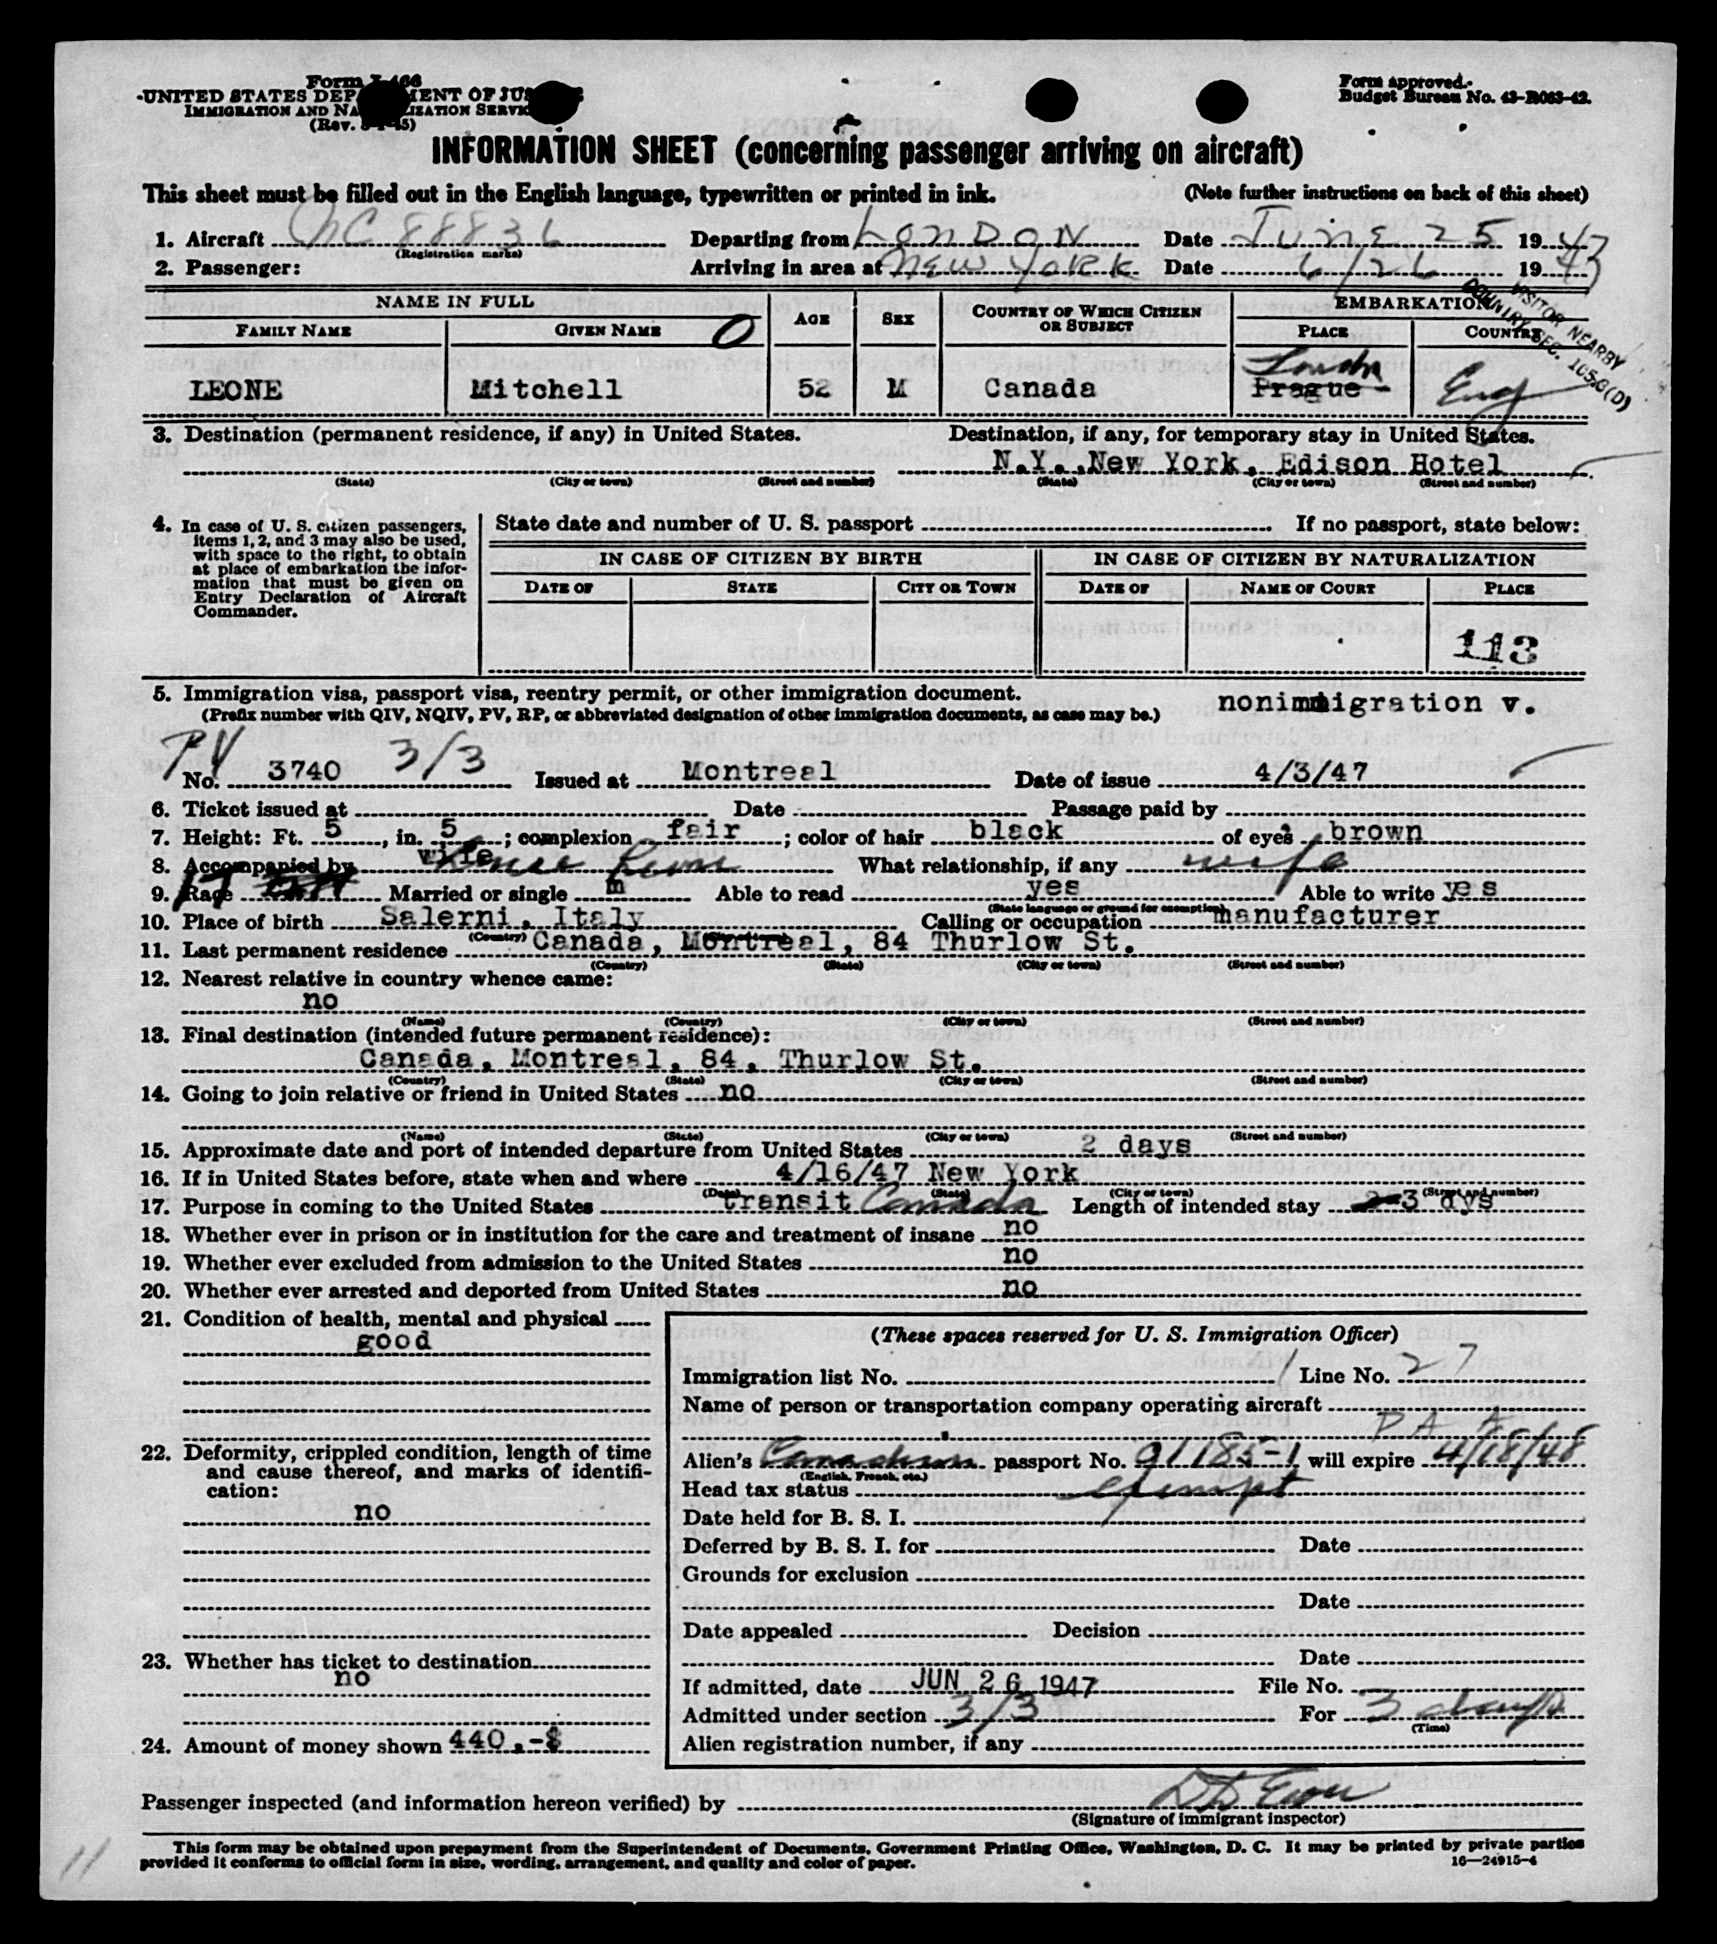 Form I-466
UNITED STATES DEPARTMENT OF JUSTICE
IMMIGRATION AND NATURALIZATION SERVICE
(Rev. 5)
Form approved.
Budget Bureau No. 43-R063-42.
INFORMATION SHEET (concerning passenger arriving on aircraft)
This sheet must be filled out in the English language, typewritten or printed in ink. (Note further instructions on back of this sheet)
1. Aircraft NC 88836 Departing from LONDON Date JUNE 25 1947
(Registration marks)
2. Passenger: Arriving in area at NEW YORK Date 6/26 1947
NAME IN FULL AGE SEX COUNTRY OF WHICH CITIZEN OR SUBJECT EMBARKATION
FAMILY NAME GIVEN NAME PLACE COUNTRY
VISITOR NEARBY
COUNTRY SEC. 165.3(D)
LEONE Mitchell 52 M Canada Prague - London Eng
3. Destination (permanent residence, if any) in United States. Destination, if any, for temporary stay in United States.
N.Y.,New York, Edison Hotel
(State) (City or town) (Street and number) (State) (City or town) (Street and number)
4. In case of U. S. citizen passengers, items 1, 2, and 3 may also be used, with space to the right, to obtain at place of embarkation the information that must be given on Entry Declaration of Aircraft Commander.
State date and number of U. S. passport If no passport, state below:
IN CASE OF CITIZEN BY BIRTH IN CASE OF CITIZEN BY NATURALIZATION
DATE OF STATE CITY OR TOWN DATE OF NAME OF COURT PLACE
113
5. Immigration visa, passport visa, reentry permit, or other immigration document. nonimmigration v.
(Prefix number with QIV, NQIV, PV, RP, or abbreviated designation of other immigration documents, as case may be.)
PV
No. 3740 3/3 Issued at Montreal Date of issue 4/3/47
6. Ticket issued at Date Passage paid by
7. Height: Ft. 5, in. 5; complexion fair; color of hair black of eyes brown
8. Accompanied by wife Leone What relationship, if any wife
9. Race Married or single m Able to read yes Able to write yes
(State language or ground for exemption)
10. Place of birth Salerni, Italy Calling or occupation manufacturer
(Country)
11. Last permanent residence Canada, Montreal, 84 Thurlow St.
(Country) (State) (City or town) (Street and number)
12. Nearest relative in country whence came:
no
(Name) (Country) (City or town) (Street and number)
13. Final destination (intended future permanent residence):
Canada, Montreal, 84, Thurlow St.
(Country) (State) (City or town) (Street and number)
14. Going to join relative or friend in United States no
(Name) (State) (City or town) (Street and number)
15. Approximate date and port of intended departure from United States 2 days
16. If in United States before, state when and where 4/16/47 New York
(Date) (State) (City or town) (Street and number)
17. Purpose in coming to the United States transit Canada Length of intended stay 2-3 dys
18. Whether ever in prison or in institution for the care and treatment of insane no
19. Whether ever excluded from admission to the United States no
20. Whether ever arrested and deported from United States no
21. Condition of health, mental and physical
good
22. Deformity, crippled condition, length of time and cause thereof, and marks of identification:
no
23. Whether has ticket to destination
no
24. Amount of money shown 440.-$
(These spaces reserved for U. S. Immigration Officer)
Immigration list No. 1 Line No. 27
Name of person or transportation company operating aircraft
P A A
Alien's Canadian passport No. 91185-1 will expire 4/18/48
(English, French, etc.)
Head tax status exempt
Date held for B. S. I.
Deferred by B. S. I. for Date
Grounds for exclusion
Date
Date appealed Decision
Date
If admitted, date JUN 26 1947 File No.
Admitted under section 3/3 For 3 days
(Time)
Alien registration number, if any
Passenger inspected (and information hereon verified) by
(Signature of immigrant inspector)
This form may be obtained upon prepayment from the Superintendent of Documents, Government Printing Office, Washington, D. C. It may be printed by private parties
provided it conforms to official form in size, wording, arrangement, and quality and color of paper. 16—24915-4
11